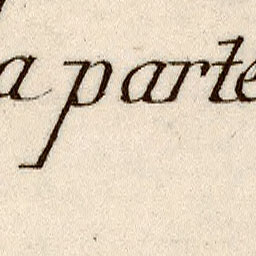 a parte